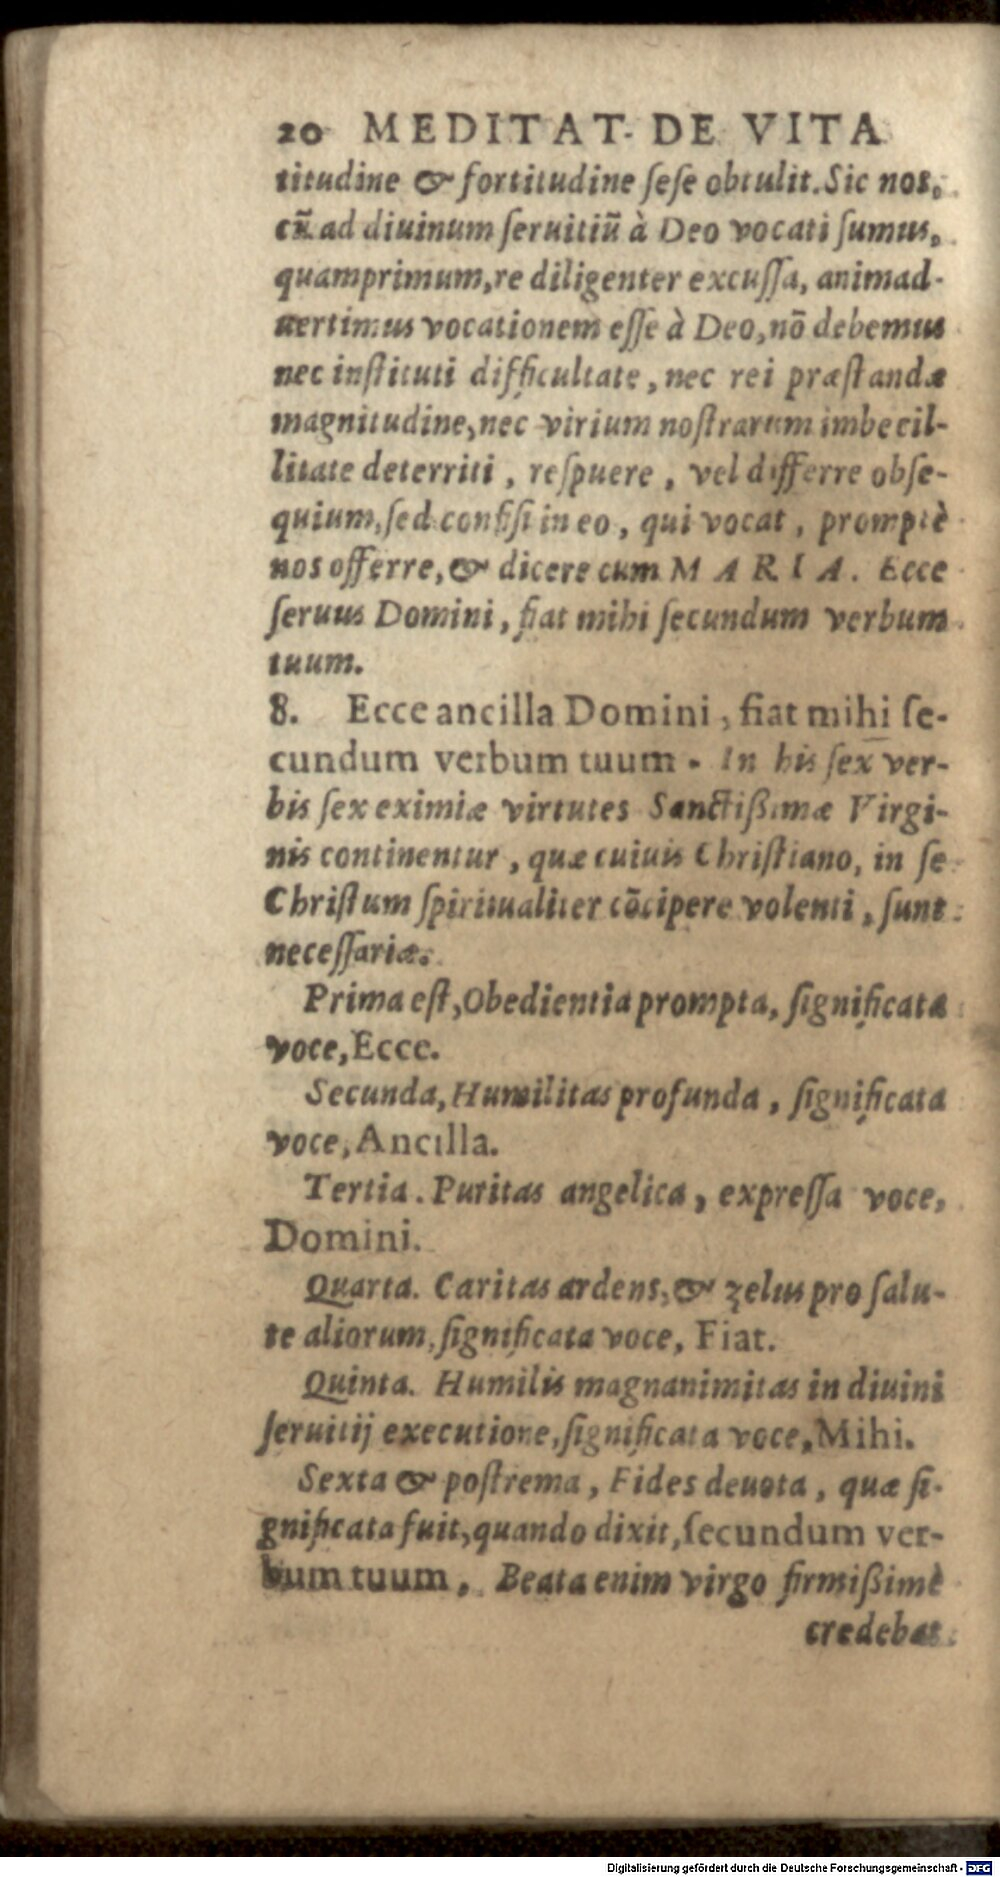 20 MEDITAT. DE VITA
titudine & fortitudine ſeſe obtulit. Sic nos,
cũ ad diuinum ſeruitiũ à Deo vocati ſumus,
quamprimum, re diligenter excuſſa, animad-
uertimus vocationem eſſe à Deo, nõ debemus
nec inſtituti difficultate, nec rei præſtandæ
magnitudine, nec virium noſtrarum imbecil-
litate deterriti, reſpuere, vel differre obſe-
quium, ſed confiſi in eo, qui vocat, promptè
nos offerre, & dicere cum MARIA. Ecce
ſeruus Domini, fiat mihi ſecundum verbum
tuum.
8. Ecce ancilla Domini, fiat mihi ſe-
cundum verbum tuum. In his ſex ver-
bis ſex eximiæ virtutes Sanctißimæ Virgi-
nis continentur, quæ cuiuis Chriſtiano, in ſe
Chriſtum ſpiritualiter cõcipere volenti, ſunt
neceſſariæ.
Prima eſt, Obedientia prompta, ſignificata
voce, Ecce.
Secunda, Humilitas profunda, ſignificata
voce, Ancilla.
Tertia. Puritas angelica, expreſſa voce,
Domini.
Quarta. Caritas ardens, & zelus pro ſalu-
te aliorum, ſignificata voce, Fiat.
Quinta. Humilis magnanimitas in diuini
ſeruitij executione, ſignificata voce, Mihi.
Sexta & poſtrema, Fides deuota, quæ ſi-
gnificata fuit, quando dixit, ſecundum ver-
bum tuum, Beata enim virgo firmißimè
credebat
Digitalisierung gefördert durch die Deutsche Forschungsgemeinschaft - DFG